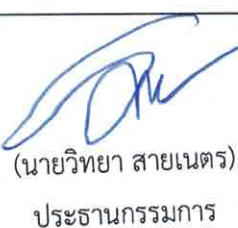 (นายวิทยา สายเนตร)
ประธานกรรมการ